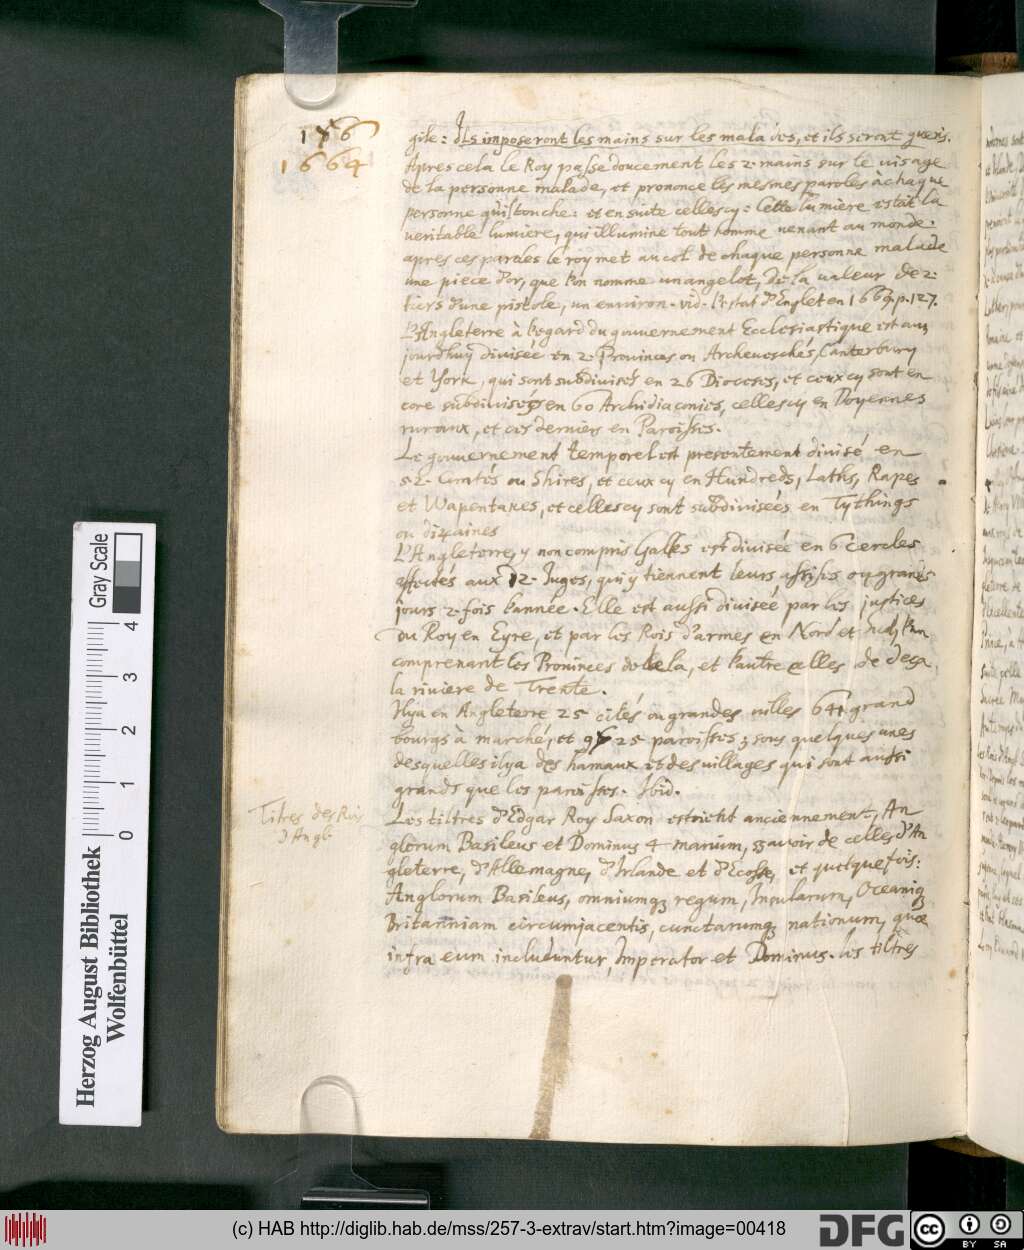 1664
gile: Ils imposeront les mains sur les malades, et ils seront gueris.
Apres cela le Roy passe doucement les 2. mains sur le visage
de la personne malade, et prononce les mesmes paroles à chaque
personne qu'il touche: et en suite cellescy: Cette lumiere estoit la
veritable lumiere, qui illumine tout homme venant au monde.
apres ces paroles le roy met au col de chaque personne malade
une piece d'or, que l'on nomme un angelot, de la valeur de 2.
tiers d'une pistole, un environ. vid. l'estat d'Anglet en 1669. p. 127.
L'Angleterre à l'egard du gouvernement Ecclesiastique est au
jourdhuy divisée en 2. Provinces ou Archeveschés, Canterbury
et York, qui sont subdivisés en 26 Dioceses, et ceux cy sont en
core subdivisées en 60 Archidiaconies, cellescy en Doyennes
ruraux, et ces derniers en Paroisses.
Le gouvernement temporel est presentement divisé en
52. Comtés ou Shires, et ceux cy en Hundreds, Laths, Rapes
et Wapentakes, et cellescy sont subdivisées en Tythings
ou dizaines
L'Angleterre, y non compris Galles est divisée en 6 cercles
affectés aux 12. Juges, qui y tiennent leurs assises ou grands
jours 2. fois l'année. Elle est aussi divisée par les justices
du Roy en Eyre, et par les Rois d'armes en Nord et Sud, l'un
comprenant les Provinces de la, et l'autre celles de deça
la riviere de Trente.
Ilya en Angleterre 25 cités ou grandes villes 641 grand
bourgs à marché, et 9725 paroisses; sous quelques unes
desquelles ilya des hamaux et des villages qui sont aussi
grands que les paroisses. Ibid.
Titres des Rois
d'Angl
Les tiltres d'Edgar Roy Saxon estoient anciennement, An
glorum Basileus et Dominus 4 marium, sçavoir de celles d'An
gleterre, d'Allemagne, d'Irlande et d'Ecosse, et quelquefois:
Anglorum Basileus, omniumq; regum, Insularum, Oceaniq;
Britanniam circumjacentis, cunctarumq; nationum, quæ
infra eum includuntur, Imperator et Dominus. les tiltres
Herzog August Bibliothek
Wolfenbüttel
Gray Scale
0 1 2 3 4
(c) HAB http://diglib.hab.de/mss/257-3-extrav/start.htm?image=00418
DFG
cc BY SA